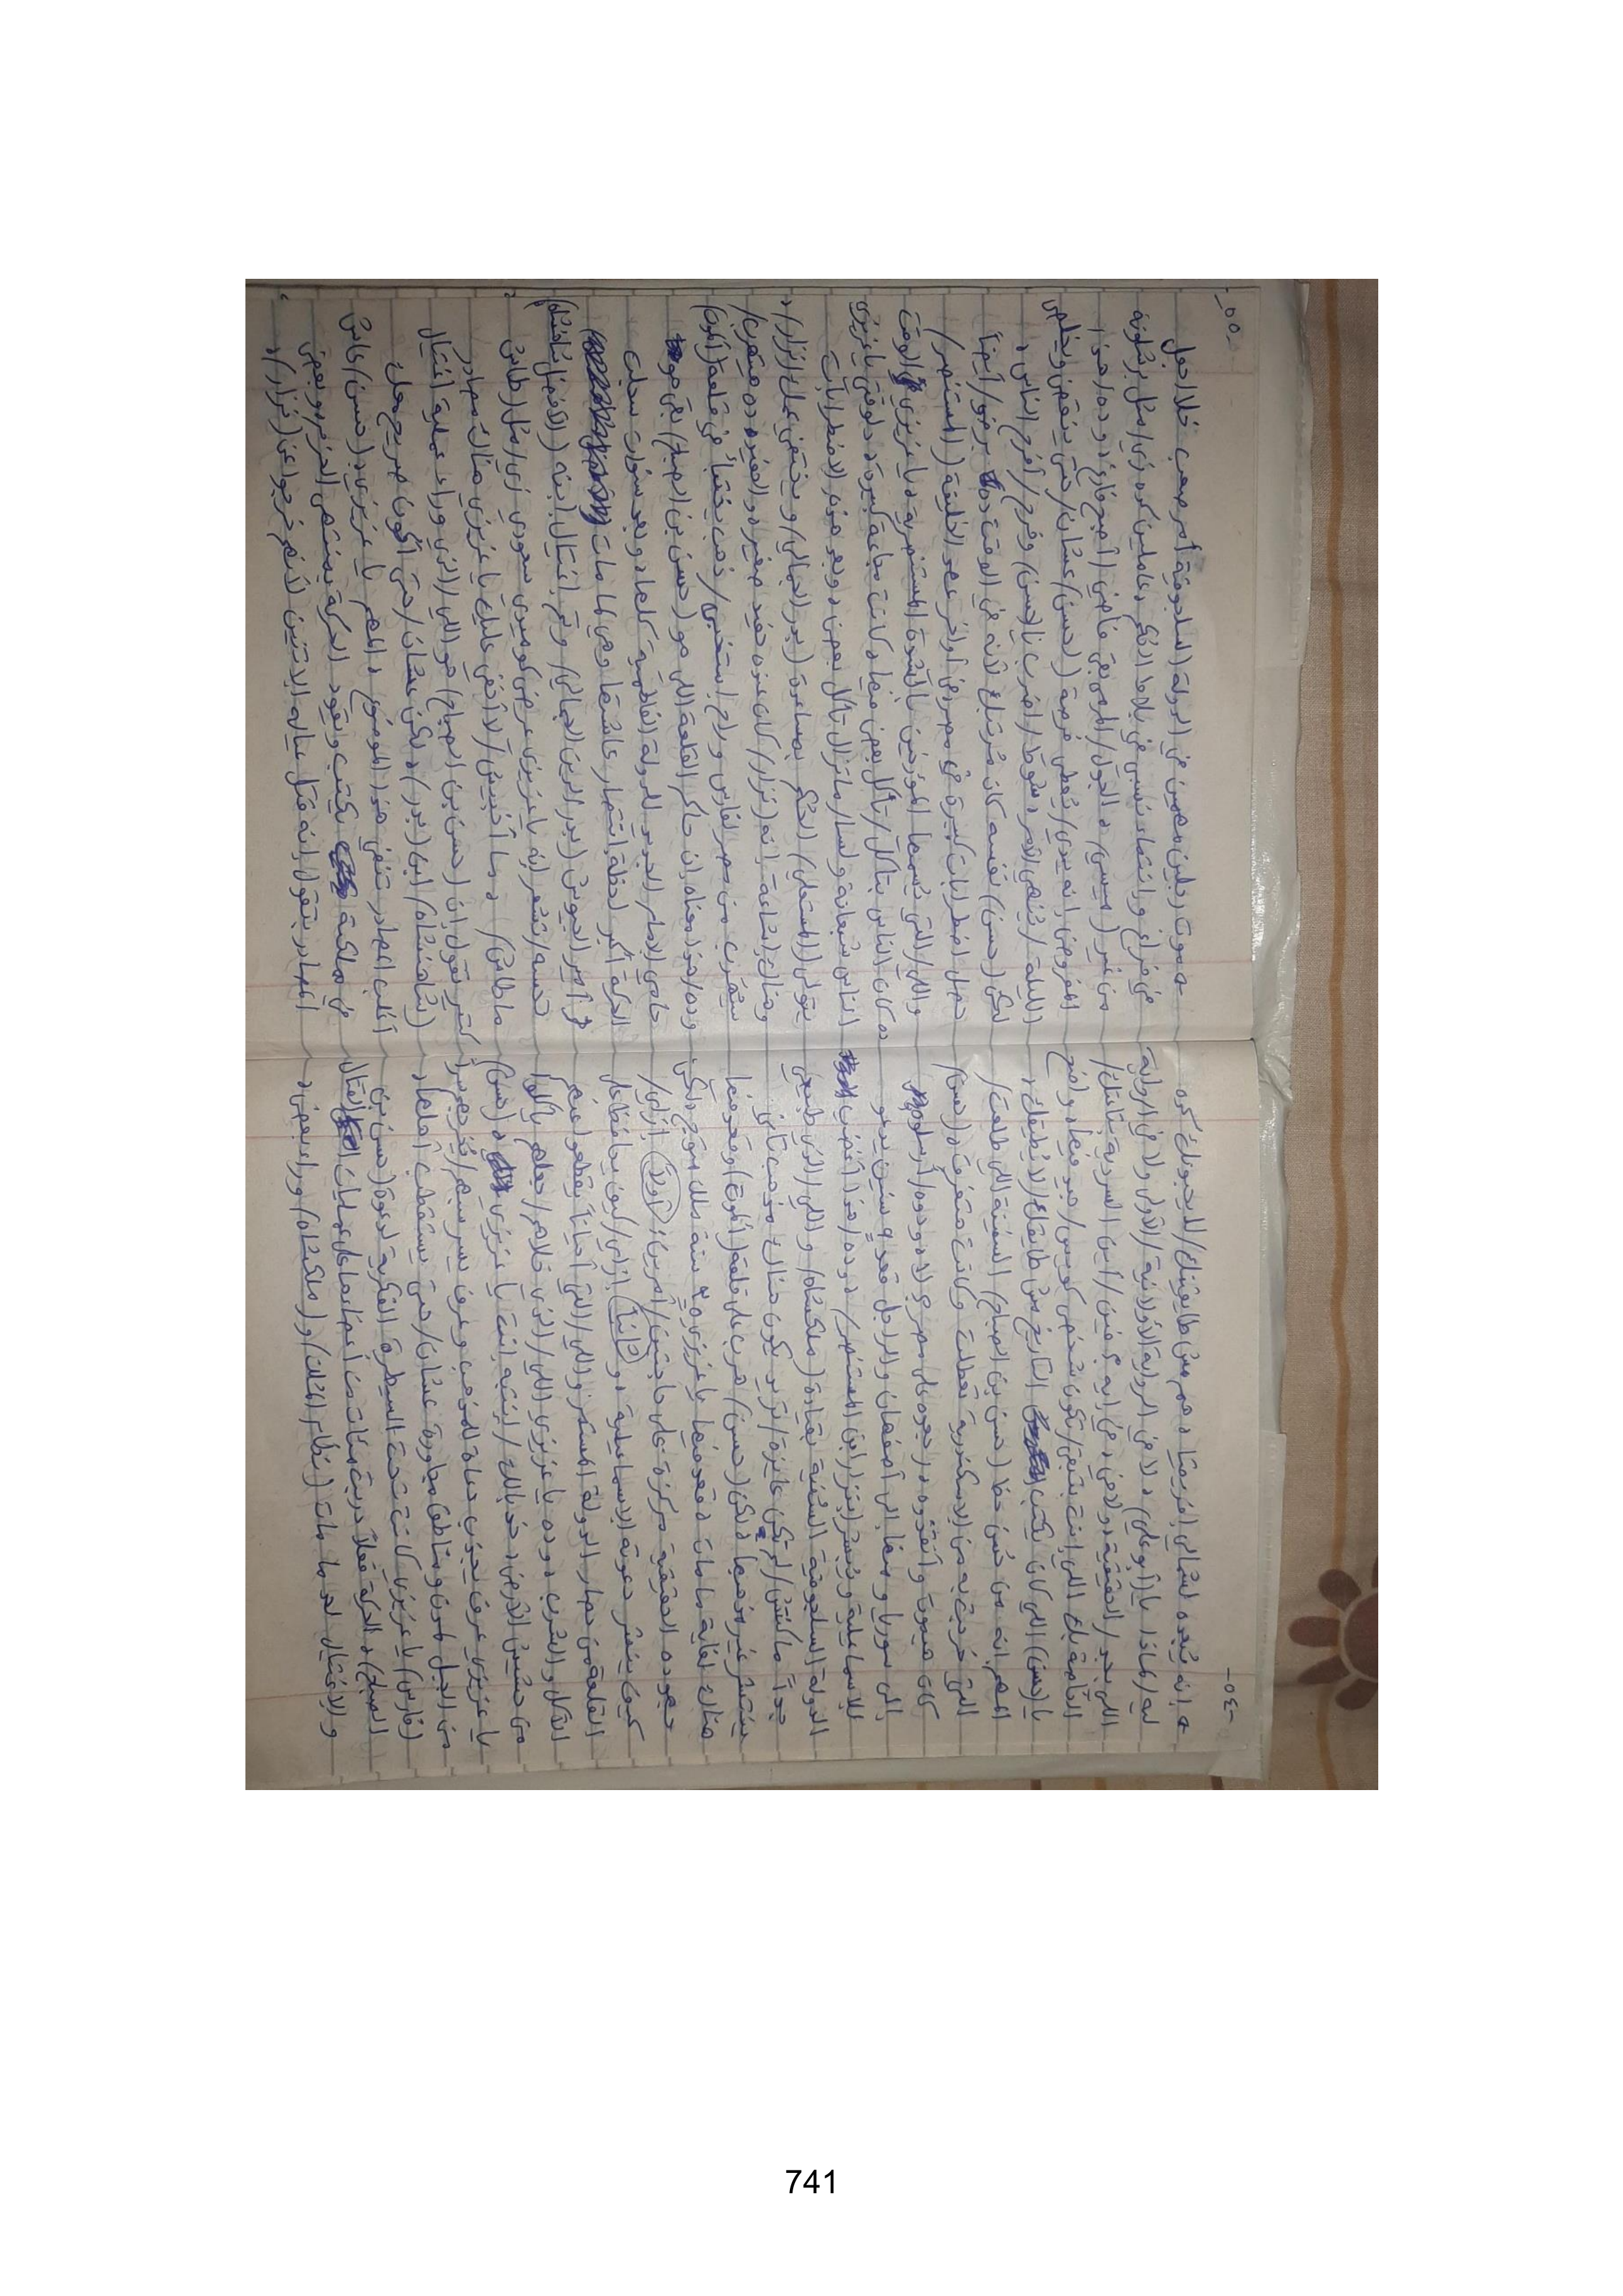 -٥٤-
إنه يُبعده لشمالي إفريقيا، وهم مش طايقينك/لايحبونك كده
ليه/لماذا يا (أبوعلي)، لا في الرواية الأولانية/الأولى ولا في الرواية
اللي بعد الحقيقة، ولا في فين/أين السردية بتاعتك/
القامة بتاع اللي إنت بتبقى/تكون شخص كويس/جيد فيها، واضح
يا (حسن) اللي كان بُكتب التاريخ مش طايقك/لا يُطيقك،
المهم إنه من حُسن حظ (حسن بن الصباح) السفينة اللي طلعت/
التي خرجت به من الإسكندرية تعطلت وكانت هتغرق، (حسن)
كان هيموت وأنقذوه، رجعوه على مصر لأ ودوه/أرسلوه
إلى سوريا ومنها إلى أصفهان والراجل قعد ٩ سنين يدعو
للإسماعيلية ويُبشر (بنزار ابن المستنصر)، وده/هذا أغضب
الدولة السلجوقية السُنية بقيادة (ملكشاه) واللي/الذي طبعي
جداً ماكنتش/لم تكن عايزة/تريد يكون هناك مذهب تاني
ينتشر غير مذهبها، لكن (حسن) هرب على قلعة (ألموت) وقعد فيها
هناك لغاية ما مات، قعد فيها يا عزيزي ٣٥ سنة ملك متوج ولكن
جهوده الحقيقية مركزة على حاجتين/أمرين: أولاً إزاي/
كيف ينشر دعوته الإسماعيلية، و ثانياً إزاي/كيف يحافظ على
القلعة من حصار الدولة المستمر واللي/التي أحياناً يقطعوا عنهم
الأكل والشرب، وده يا عزيزي اللي/الذي خلاهم/جعلهم ياكلوا
من حشيش الأرض، خد بالك/إنتبه إنت يا عزيزي، (حسن)
يا عزيزي عرف يجذب دعاة للمذهب وعرف يسربهم/يُخرجهم برا
من الجبل لمدن ومناطق مجاورة عشان/حتى يستقطب أهلها،
(فارس) يا عزيزي كانت تحت السيطرة الفكرية لدعوة (حسن بن
الصباح)، الحركة فعلاً دربت مئات من أعضاءها على عمليات القتال
والاغتيال لحد ما مات (نظام المُلك) و(ملكشاه) ورا بعض،
-٥٥-
موت رجلين مهمين في الدولة السلجوقية أمر صعب خلا/جعل
في فراغ وانقسام نسبي في بلاط الحُكم، عاملين كده زي/مثل برشلونة
من غير (ميسي)، الجول/المرمى بقى فاضي/أصبح فارغ، وده/هذا
المفروض إنه يدي/يُعطي فرصة (لحسن) عشان/حتى ينقض ويخلص
الليلة/يُنهي الأمر، سقوط/اضرب يا (حسن) وفرح/أفرح الناس،
لكن (حسن) نفسه كان مُرتبك لأنه في الوقت ده برضو/أيضاً
تحصل اضطرابات كبيرة في مصر في أواخر عهد الخليفة (المستنصر)
واللي/التي يُسمها المؤرخين بالشدة المستنصرية، يا عزيزي الوقت
ده كان الناس بتاكل/تأكل بعض فيها، كانت مجاعة كبيرة، دلوقتي يا عزيزي
الناس شبعانة ولسا/مازال تأكل بعض، وبعد هذه الاضطرابات
يتولى (المستعلي) الحُكم بمساعدة (بدر الجمالي) ويختفي عمك (نزار)،
وهناك إشاعة إنه (نزار) كان عنده حفيد صغير، والحفيد ده هيتهرب/
سَيُهرب من مصر لفارس وراح إستخبى/ذهب يختبأ في قلعة (ألموت)
وده/هذا معناه إن حاكم القلعة اللي هو (حسن بن الصباح) بقى هو
حامي الإمام الجديد للدولة الفاطمية كلها، وبعد سنوات سجلت
الحركة أكبر لحظة انتصار عاشتها وهي لما مات
أمير الجيوش (بدر الدين الجمالي) وتم إغتيال ابنه (الأفضل شاهنشاه)
تحسه/تشعر إنه يا عزيزي عرض كوميدي سعودي زي/مثل (طاش
ما طاش)، وما أخبيش/لا أُخفي عليك يا عزيزي هناك مصادر
كتير بتقول إن (حسن بن الصباح) هو اللي/الذي وراء عملية اغتيال
(شاهنشاه) ابن (بدر)، ولكن عشان/حتى أكون صريح معك
أغلب المصادر تنفي هذا الموضوع، المهم يا عزيزي (حسن) عاش
في ملكته بُكتب ويقود الحركة بمنتهى الحزم، وبعض
المصادر بتقول إنه قتل عياله الاتنين لأنهم خرجوا عن (نزار)،
741